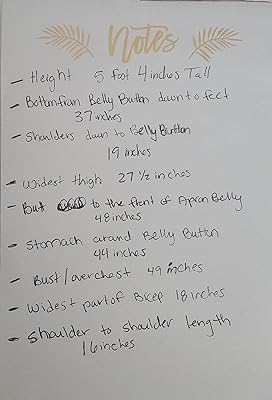 Notes
- Height 5 foot 4 inches Tall
- Bottom from Belly Button down to feet
37 inches
- Shoulders down to Belly Button
19 inches
- Widest thigh 27 1/2 inches
- But to the front of Apron Belly
48 inches
- Stomach around Belly Button
44 inches
- Bust/overchest 49 inches
- Widest part of Bicep 18 inches
- Shoulder to shoulder length
16 inches